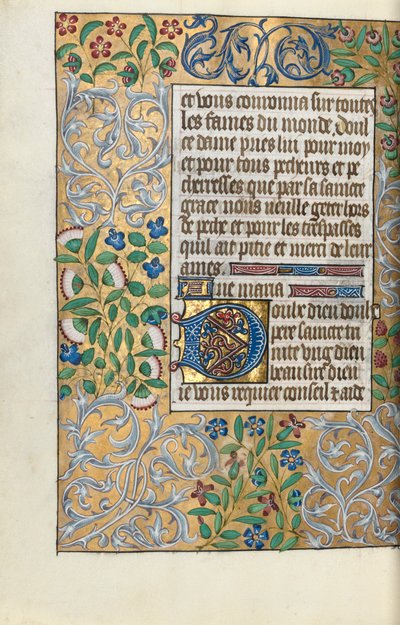 et vous couronna sur toutes
les fames du monde. Doul
ce dame pries lui pour moy
et pour tous pecheurs et pe
cheresses que par la saincte
grace nous vueille geter hors
de peche et pour les trespasses
quil ait pitie et merci de leur
ames.
Aue maria
Doulx dieu doulx
pere saincte tri
nite ung dieu
beau sire dieu
ie vous requier conseil et aide